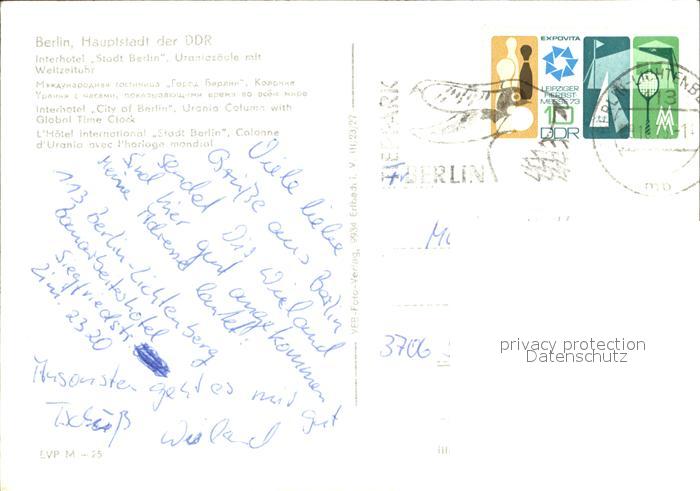 Berlin, Hauptstadt der DDR
Interhotel „Stadt Berlin“, Uraniasäule mit
Weltzeituhr
Международная гостиница „Город Берлин“, Колонна
Урания с часами, показывающими время во всём мире
Interhotel „City of Berlin“, Urania Column with
Global Time Clock
L'Hôtel international „Stadt Berlin“, Colonne
d'Urania avec l'horloge mondial
Viele liebe
Grüße aus Berlin
sendet Dir Wieland
Sind hier gut angekommen
Meine Adresse lautet:
113 Berlin-Lichtenberg
Bauarbeiterhotel
Siegfriedstr.
Zim. 2320
Ansonsten geht es mir gut
Tschüß
Wieland
EVP M –25
VEB-Foto-Verlag, 9934 Erlbach i. V.
EXPOVITA
LEIPZIGER
HERBST-
MESSE 73
10
DDR
MM
TIERPARK
BERLIN
BERLIN-LICHTENB
13
3706
privacy protection
Datenschutz